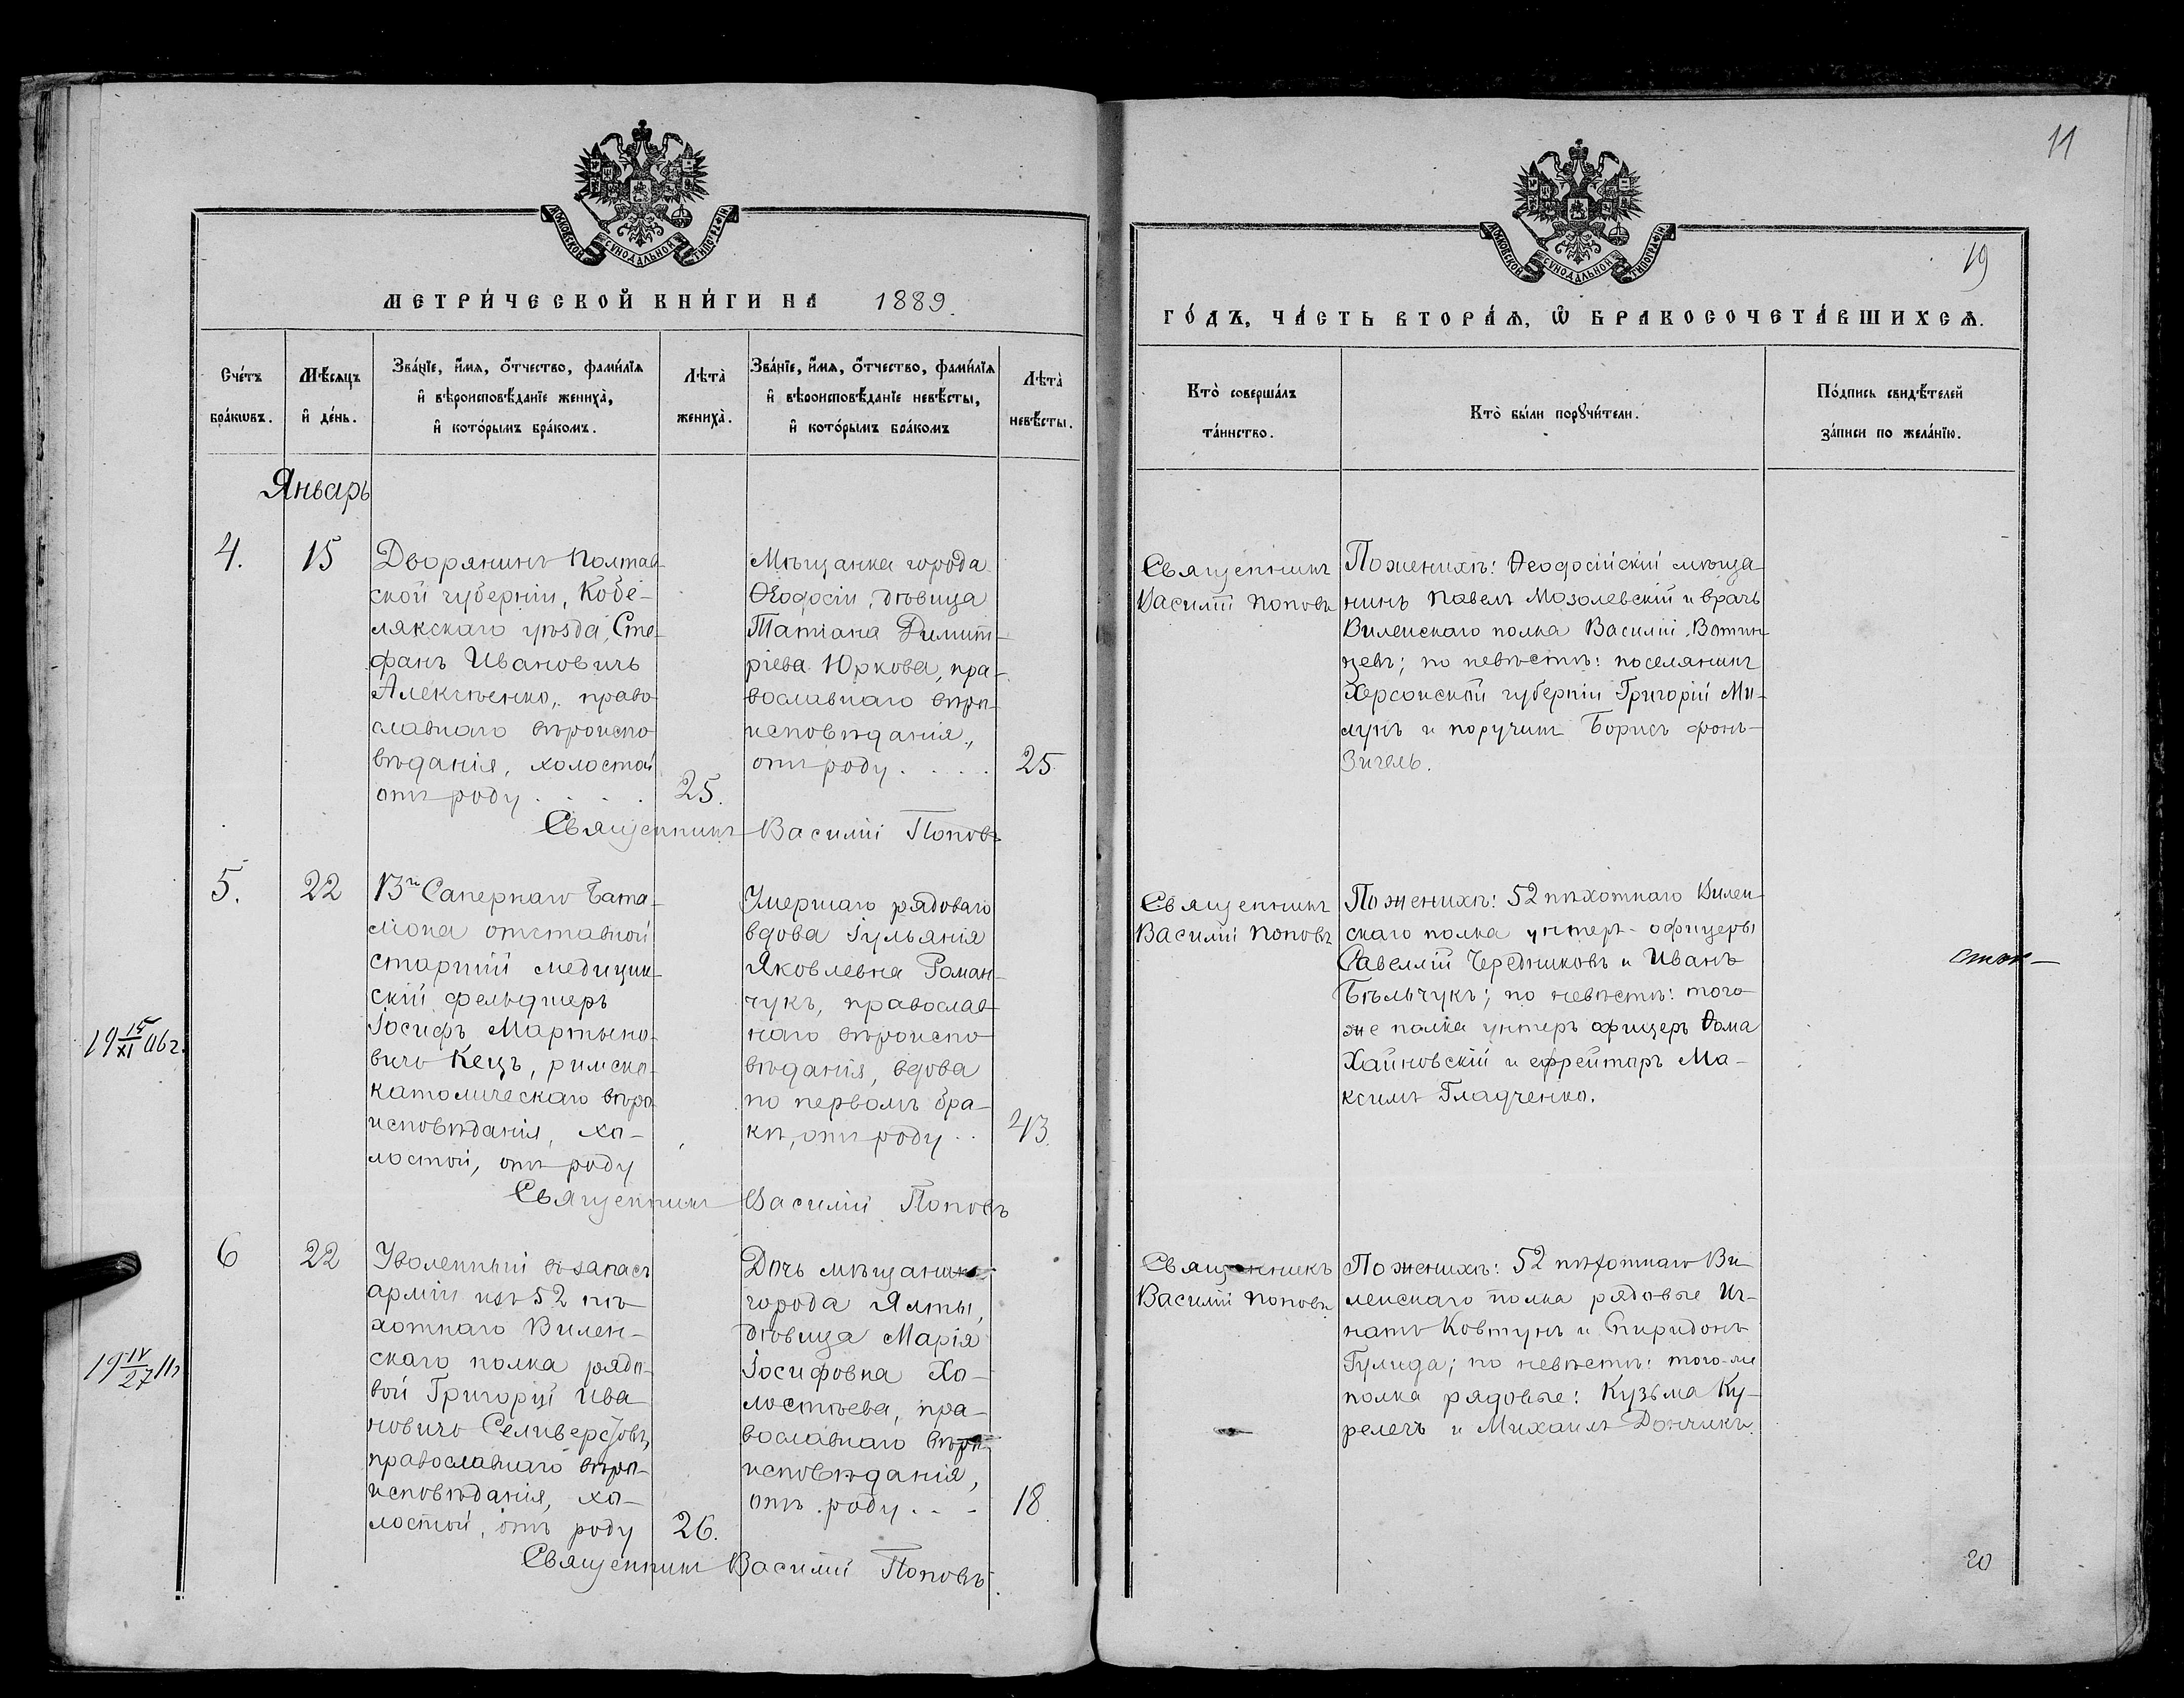 11
МОСКОВСКОЙ СѴНОДАЛЬНОЙ ТИПОГРАФІИ
МОСКОВСКОЙ СѴНОДАЛЬНОЙ ТИПОГРАФІИ
19
МЕТРИ́ЧЕСКОЙ КНИ́ГИ НА 1889.
ГО́ДЪ, ЧА́СТЬ ВТОРА́Ѧ, Ѡ҆ БРАКОСОЧЕТА́ВШИХСѦ.
Сче́тъ
бра́кѡвъ.
Мѣ́сяцъ
и҆ де́нь.
Зва́нїе, и҆́мѧ, ѻ҆́тчество, фами́лїѧ
и҆ вѣроисповѣ́данїе жениха̀,
и҆ кото́рымъ бра́комъ.
Лѣта̀
жениха̀.
Зва́нїе, и҆́мѧ, ѻ҆́тчество, фами́лїѧ
и҆ вѣроисповѣ́данїе невѣ́сты,
и҆ кото́рымъ бра́комъ
Лѣта̀
невѣ́сты.
Кто̀ соверша́лъ
та́инство.
Кто̀ бы́ли порꙋчи́тели.
По́дпись свидѣ́телей
за́писи по жела́нїю.
Январь
4.
15
Дворянинъ Полтав
ской губерніи, Кобе-
лякскаго уѣзда, Сте-
фанъ Ивановичъ
Алексѣенко, право-
славнаго вѣроиспо
вѣданія, холостой
отъ роду . . .
25.
Мѣщанка города
Ѳеодосіи, дѣвица
Татіана Димит-
ріева Юркова, пра-
вославнаго вѣро-
исповѣданія,
отъ роду . . . .
25
Священникъ Василій Поповъ
Священникъ
Василій Поповъ
По женихѣ: Ѳеодосійскій мѣща-
нинъ Павелъ Мозолевскій и врачъ
Виленскаго полка Василій Вотин-
цевъ; по невѣстѣ: поселянинъ
Херсонской губерніи Григорій Ми-
лунъ и поручикъ Борисъ фонъ-
Зигель.
5.
22
13го Сапернаго Бата-
ліона отставной
старшій медицин-
скій фельдшеръ
Іосифъ Мартыно-
вичъ Кецъ, римско-
католическаго вѣро
исповѣданія, хо-
лостой, отъ роду
Умершаго рядоваго
вдова Іульянія
Яковлевна Роман-
чукъ, православ-
наго вѣроиспо
вѣданія, вдова
по первомъ бра-
кѣ, отъ роду . .
43.
Священникъ Василій Поповъ
19 15/XI 06 г.
Священникъ
Василій Поповъ
По женихѣ: 52 пѣхотнаго Вилен-
скаго полка унтеръ-офицеры
Савеллій Чередниковъ и Иванъ
Бѣльчукъ; по невѣстѣ: того-
же полка унтеръ офицеръ Ѳома
Хайновскій и ефрейторъ Ма-
ксимъ Гладченко.
6
22
Уволенный въ запасъ
арміи изъ 52 пѣ-
хотнаго Вилен-
скаго полка рядо-
вой Григорій Ива
новичъ Селиверстовъ,
православнаго вѣро-
исповѣданія, хо-
лостой, отъ роду
26.
Дочь мѣщанина
города Ялты,
дѣвица Марія
Іосифовна Хо-
лостѣева, пра-
вославнаго вѣро-
исповѣданія,
отъ роду . . -
18.
Священникъ Василій Поповъ.
19 IV/27 11 г
Священникъ
Василій Поповъ
По женихѣ: 52 пѣхотнаго Ви-
ленскаго полка рядовые Иг-
натъ Ковтунъ и Спиридонъ
Гулида; по невѣстѣ: того-же
полка рядовые: Кузьма Ку-
релечъ и Михаилъ Дончикъ.
20